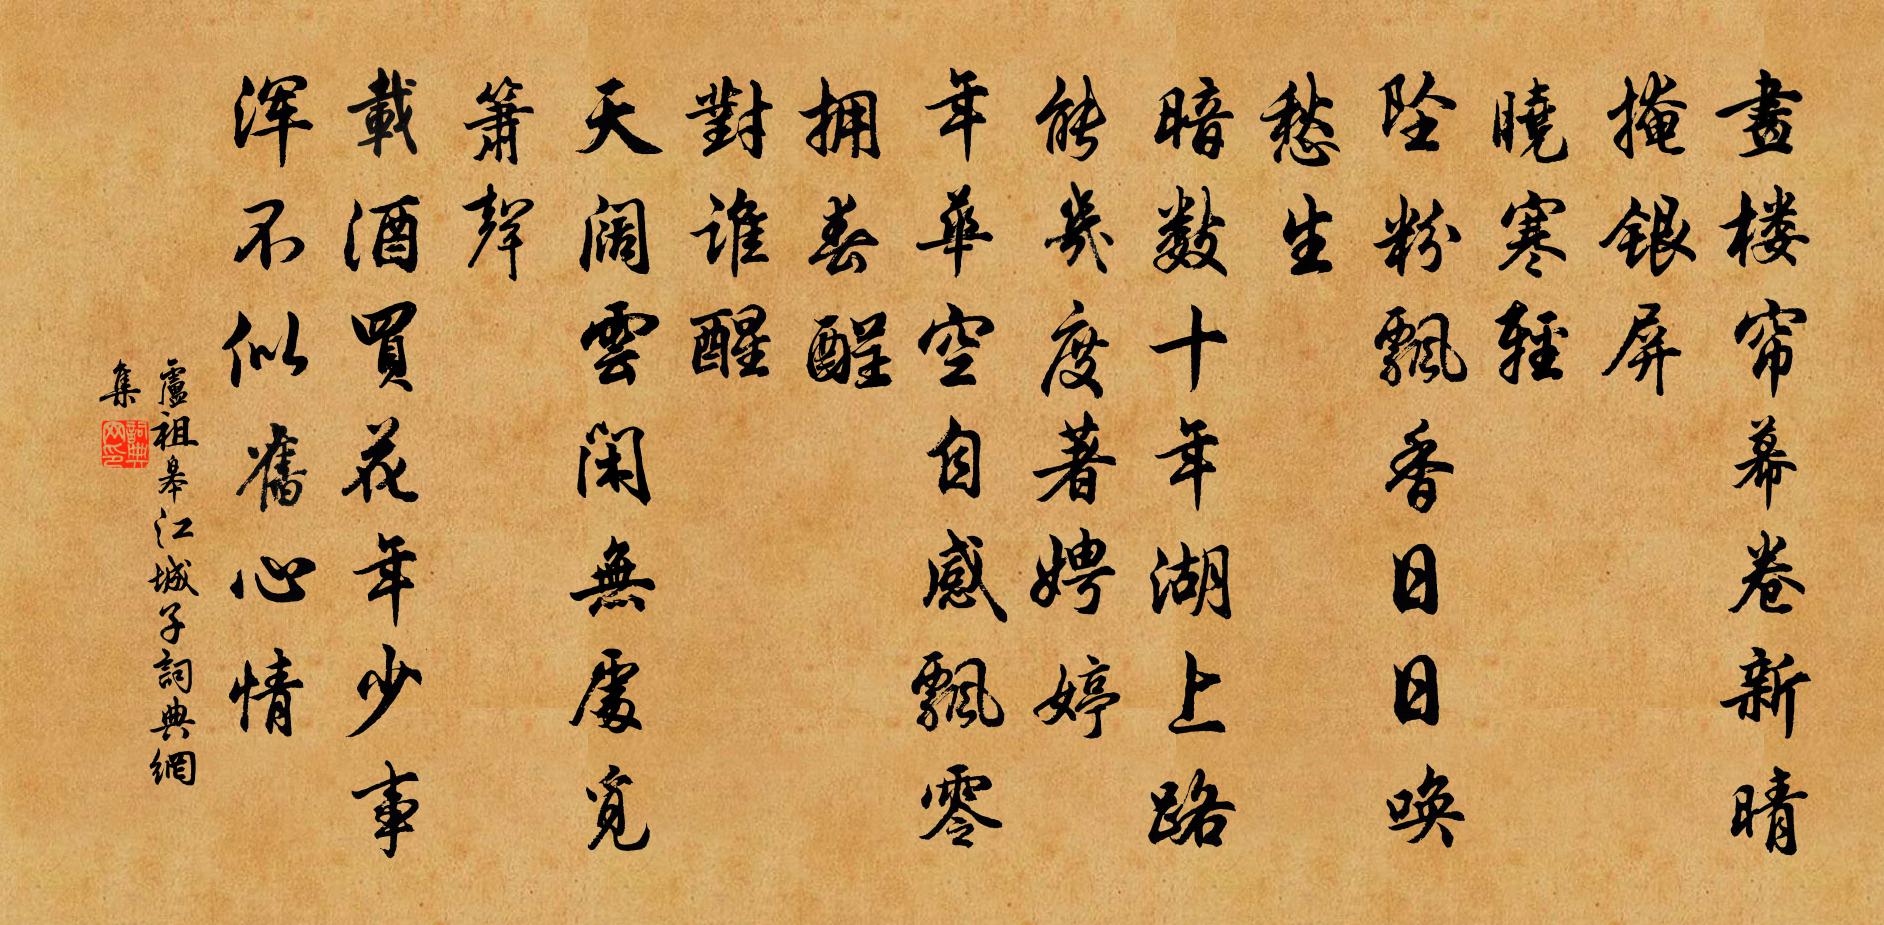 畫楼帘幕卷新晴
掩銀屏
曉寒輕
坠粉飄香日日唤
愁生
暗数十年湖上路
能幾度著娉婷
年華空自感飄零
拥春酲
對誰醒
天闊雲閑無處覓
簫聲
載酒買花年少事
渾不似舊心情
盧祖皋江城子詞典網
集
詞典网印